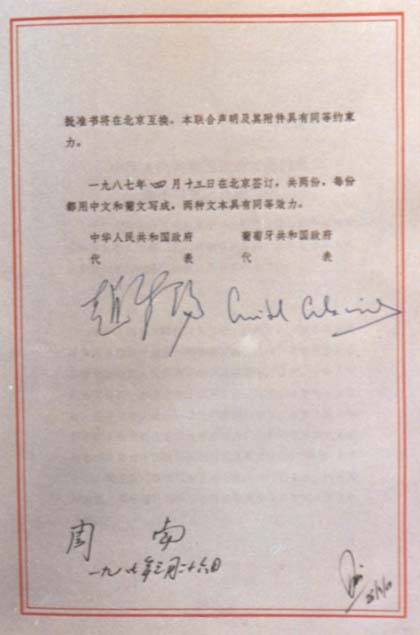 批准书将在北京互换。本联合声明及其附件具有同等约束
力。
一九八七年四月十三日在北京签订，共两份，每份
都用中文和葡文写成，两种文本具有同等效力。
中华人民共和国政府 葡萄牙共和国政府
代 表 代 表
赵紫阳
周 南
一九八七年三月二十六日